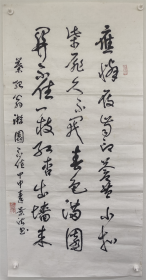 應憐屐齒印蒼苔小扣
柴扉久不開春色滿園
關不住一枝紅杏出墻來
葉紹翁遊園不值甲申春書